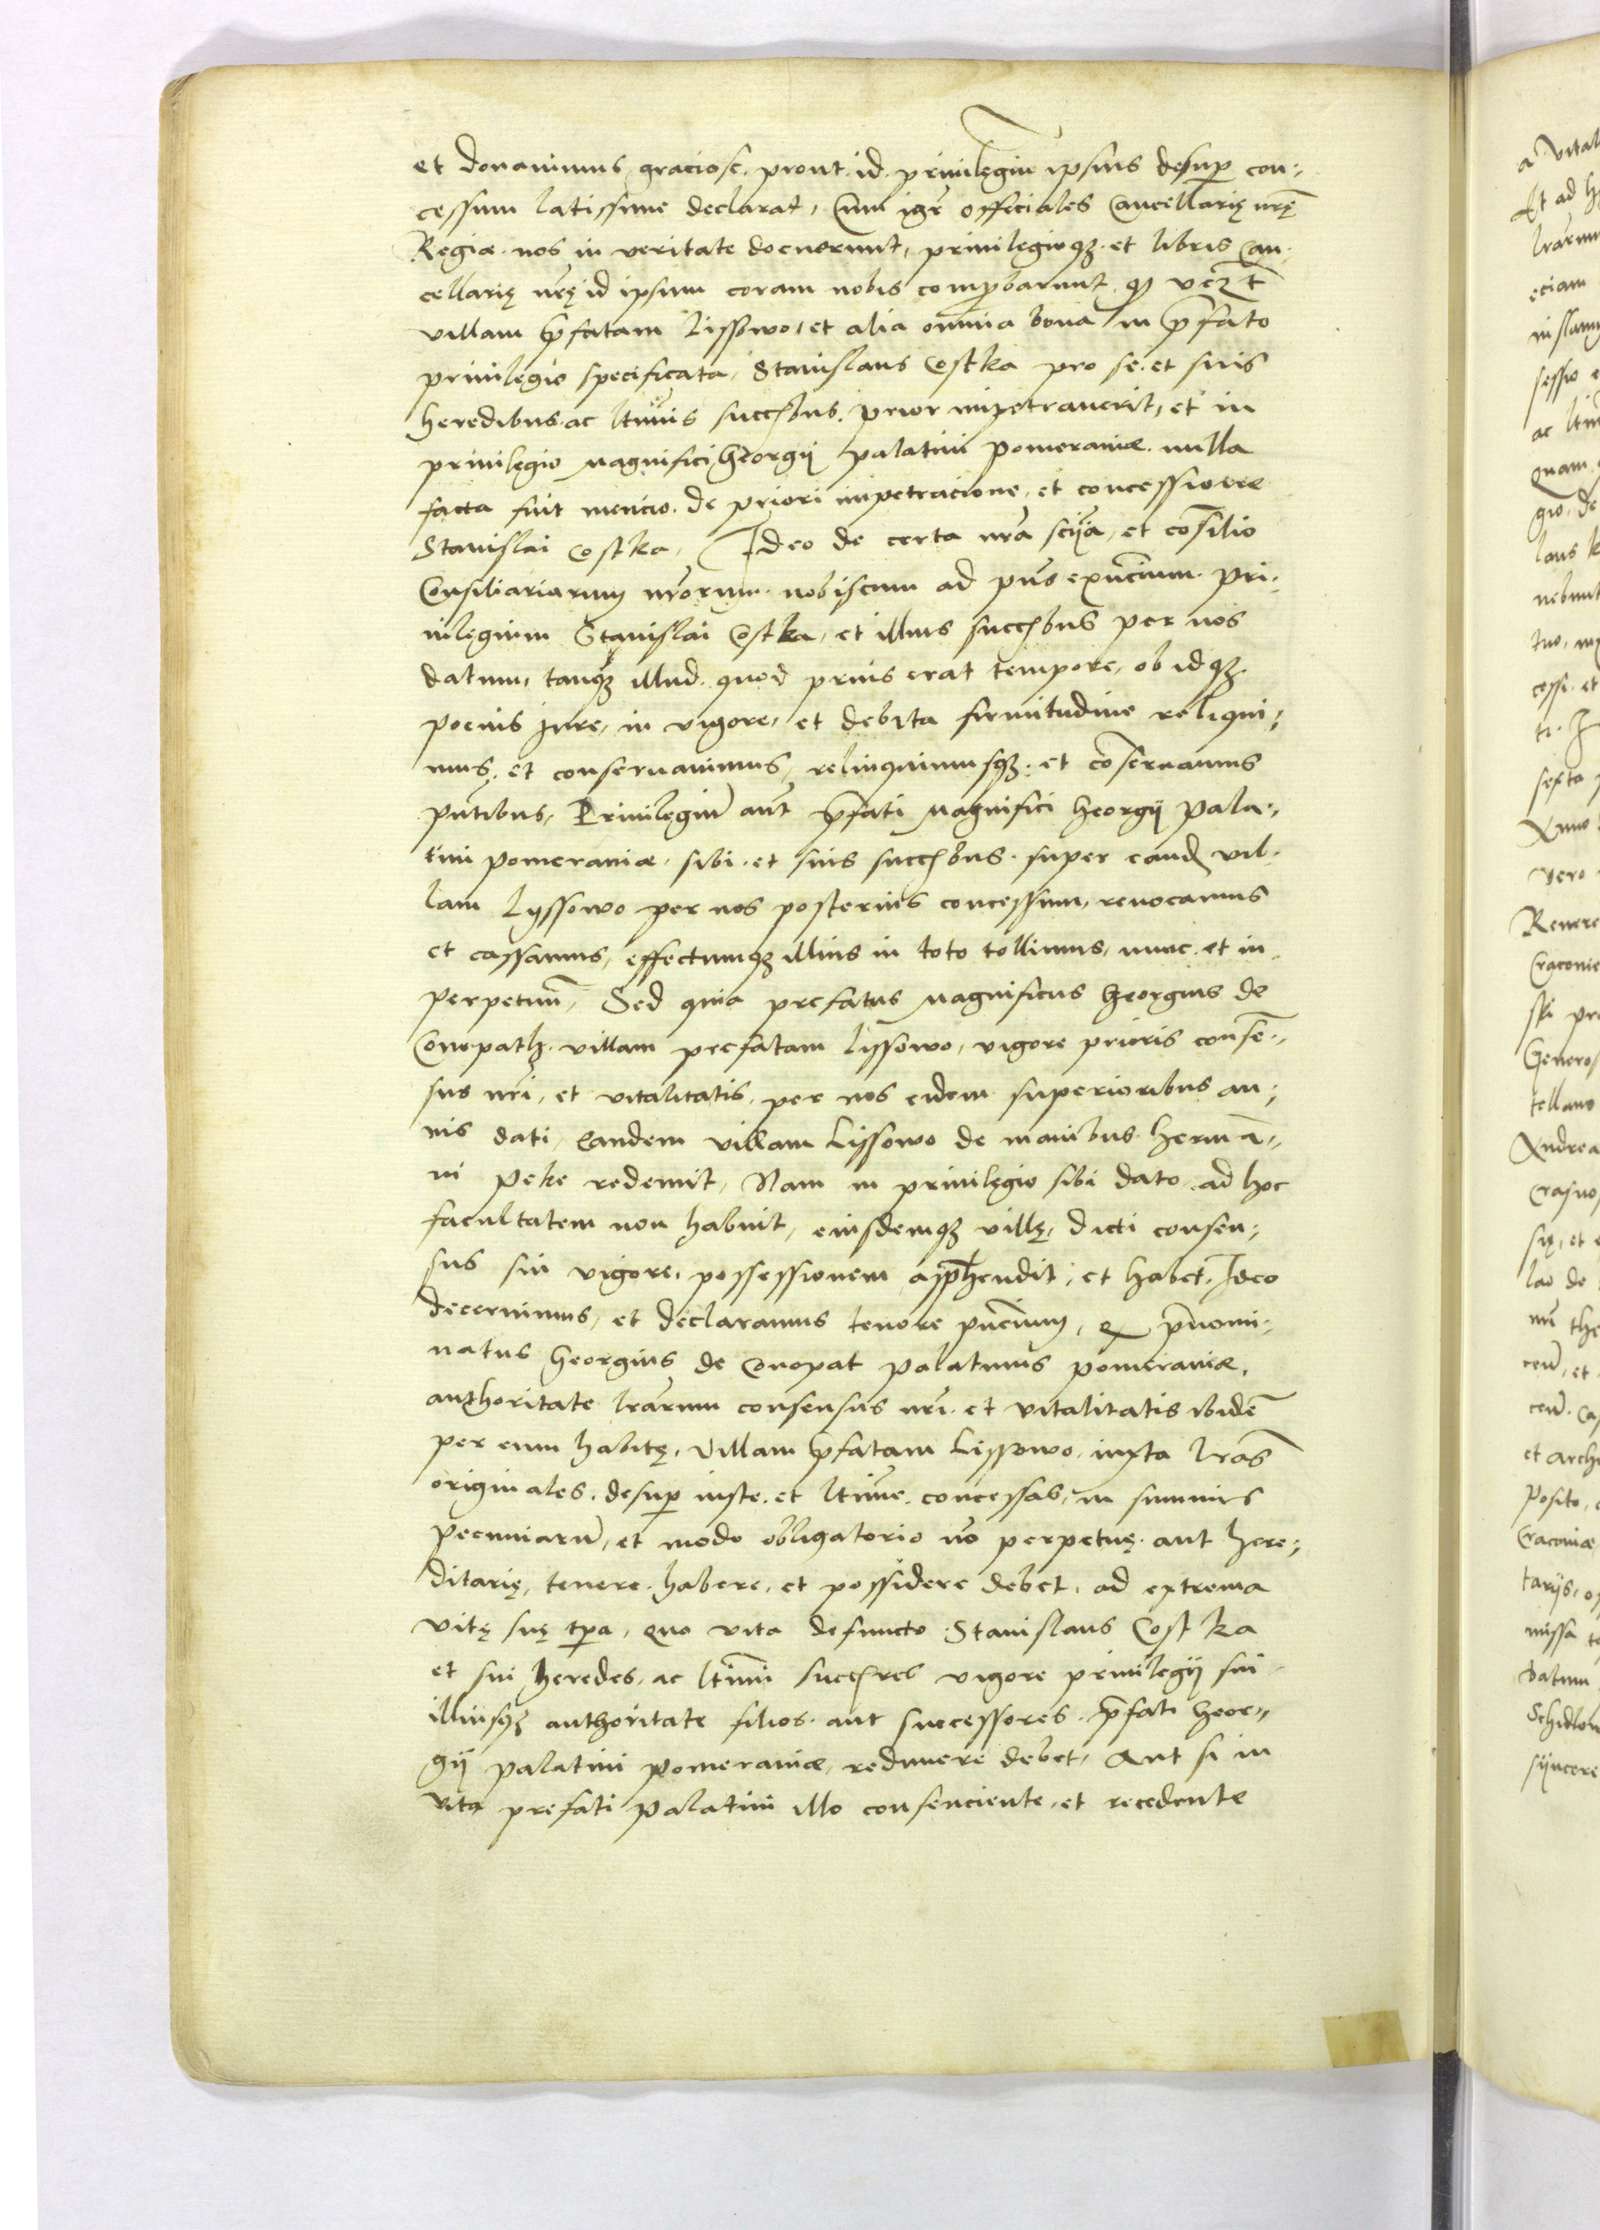 et donavimus, graciose. prout id. privilegiũ ipsius desup con-
cessum latissime declarat, Cum igr̃ officiales Cancellarię nr̃ę
Regiæ. nos in veritate docuerunt, privilegioqȝ. et libris Can-
cellarię nr̃ę id ipsum coram nobis comprobarunt. qȝ
villam p̃fatam Lissowo, et alia omnia bona in p̃fato
privilegio specificata, Stanislaus Costka pro se. et suis
heredibus. ac ltimis succ̃bus. prior impetraverit, et in
privilegio Magnifici Georgij Palatini Pomeraniæ. nulla
facta fuit mencio. de priori impetracione, et concessione
Stanislai Costka, Ideo de certa nr̃a scĩa, et cõsilio
Consiliariarum nr̃orum. nobiscum ad pñs exñcium. Pri-
vilegium Stanislai Costka, et illius succ̃bus per nos
datum, tanqȝ illud. quod prius erat tempore, ob idqȝ.
pocius Jure, in vigore, et debita firmitudine reliqui-
mus, et conservavimus, relinquimusqȝ. et cõservamus
pñtibus, Privilegiũ aũt p̃fati Magnifici Georgij Pala-
tini Pomeraniæ. sibi. et suis succ̃bus. super eand vil-
lam Lyssowo per nos posterius concessum, revocamus
et cassamus, effectumqȝ illius in toto tollimus, nunc. et in
perpetuũ, Sed quia prefatus Magnificus Georgius de
Conopath. villam prefatam Lissowo, vigore prioris consẽ-
sus nr̃i, et vitalitatis, per nos eidem superioribus an-
nis dati, eandem villam Lissowo de manibus. hermã-
ni Peke redemit, Nam in privilegio sibi dato, ad hoc
facultatem non habuit, eiusdemqȝ villę, dicti consen-
sus sui vigore, possessionem apprehendit, et habet. Ideo
decernimus, et declaramus tenore pñcium, qȝ p̃nomi-
natus Georgius de Conopat Palatinus Pomeraniæ,
authoritate lr̃arum consensus nr̃i. et vitalitatis ibidẽ
per eum habitę, Villam p̃fatam Lissowo. iuxta lr̃as
originales. desup iuste. et ltime. concessas, in summis
pecuniarũ, et modo obligatorio nõ perpetuę. aut here-
ditarię, tenere. habere, et possidere debet, ad extrema
vitę suę tp̃a, Quo vita defuncto. Stanislaus Costka
et sui heredes, ac ltimi succ̃res vigore privilegij sui
illiusqȝ authoritate filios. aut successores. p̃fati Geor-
gij Palatini Pomeraniæ, redimere debet, Aut si in
vita prefati Palatini illo consenciente, et recedente
a vital
Et ad h
lr̃arum
eciam
sessio e
quam
laus k
nebunt
cessi. et
sexta
Anno
vero
Revere
Cracovie
Generos
tellano
Andrea
lao de
et Archi
posito,
Cracoviæ
missa
datum